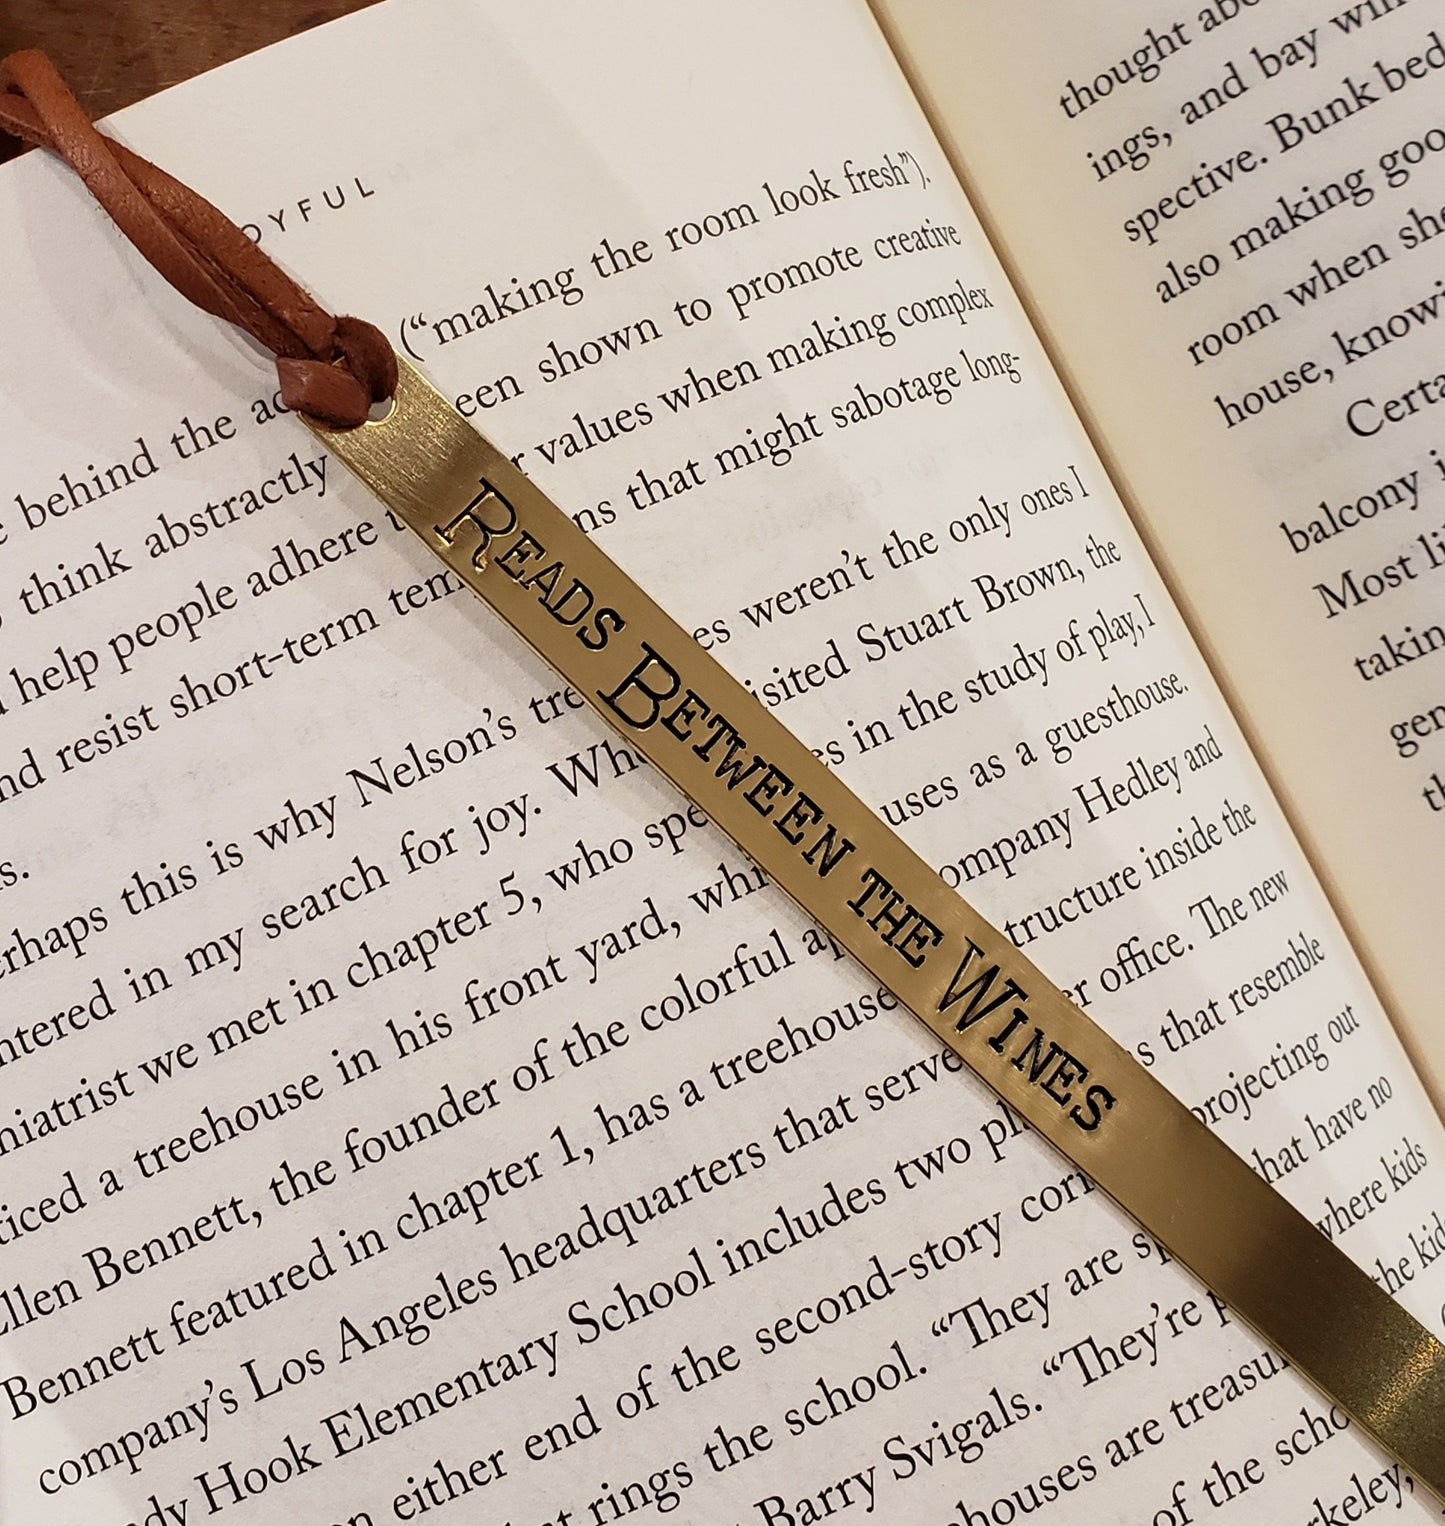 OYFUL
behind the ac (“making the room look fresh”).
think abstractly een shown to promote creative
help people adhere t r values when making complex
nd resist short-term tem ns that might sabotage long-
s.
erhaps this is why Nelson’s tre es weren’t the only ones I
ntered in my search for joy. Whe isited Stuart Brown, the
hiatrist we met in chapter 5, who spe es in the study of play, I
ticed a treehouse in his front yard, whi uses as a guesthouse.
Ellen Bennett, the founder of the colorful ap ompany Hedley and
Bennett featured in chapter 1, has a treehouse tructure inside the
company’s Los Angeles headquarters that serve er office. The new
dy Hook Elementary School includes two pl s that resemble
n either end of the second-story corri projecting out
t rings the school. “They are sp that have no
Barry Svigals. “They’re p where kids
houses are treasu the kid
of the scho
rkeley,
READS BETWEEN THE WINES
thought abo
ings, and bay win
spective. Bunk bed
also making goo
room when sho
house, knowi
Certa
balcony i
Most li
takin
gen
th